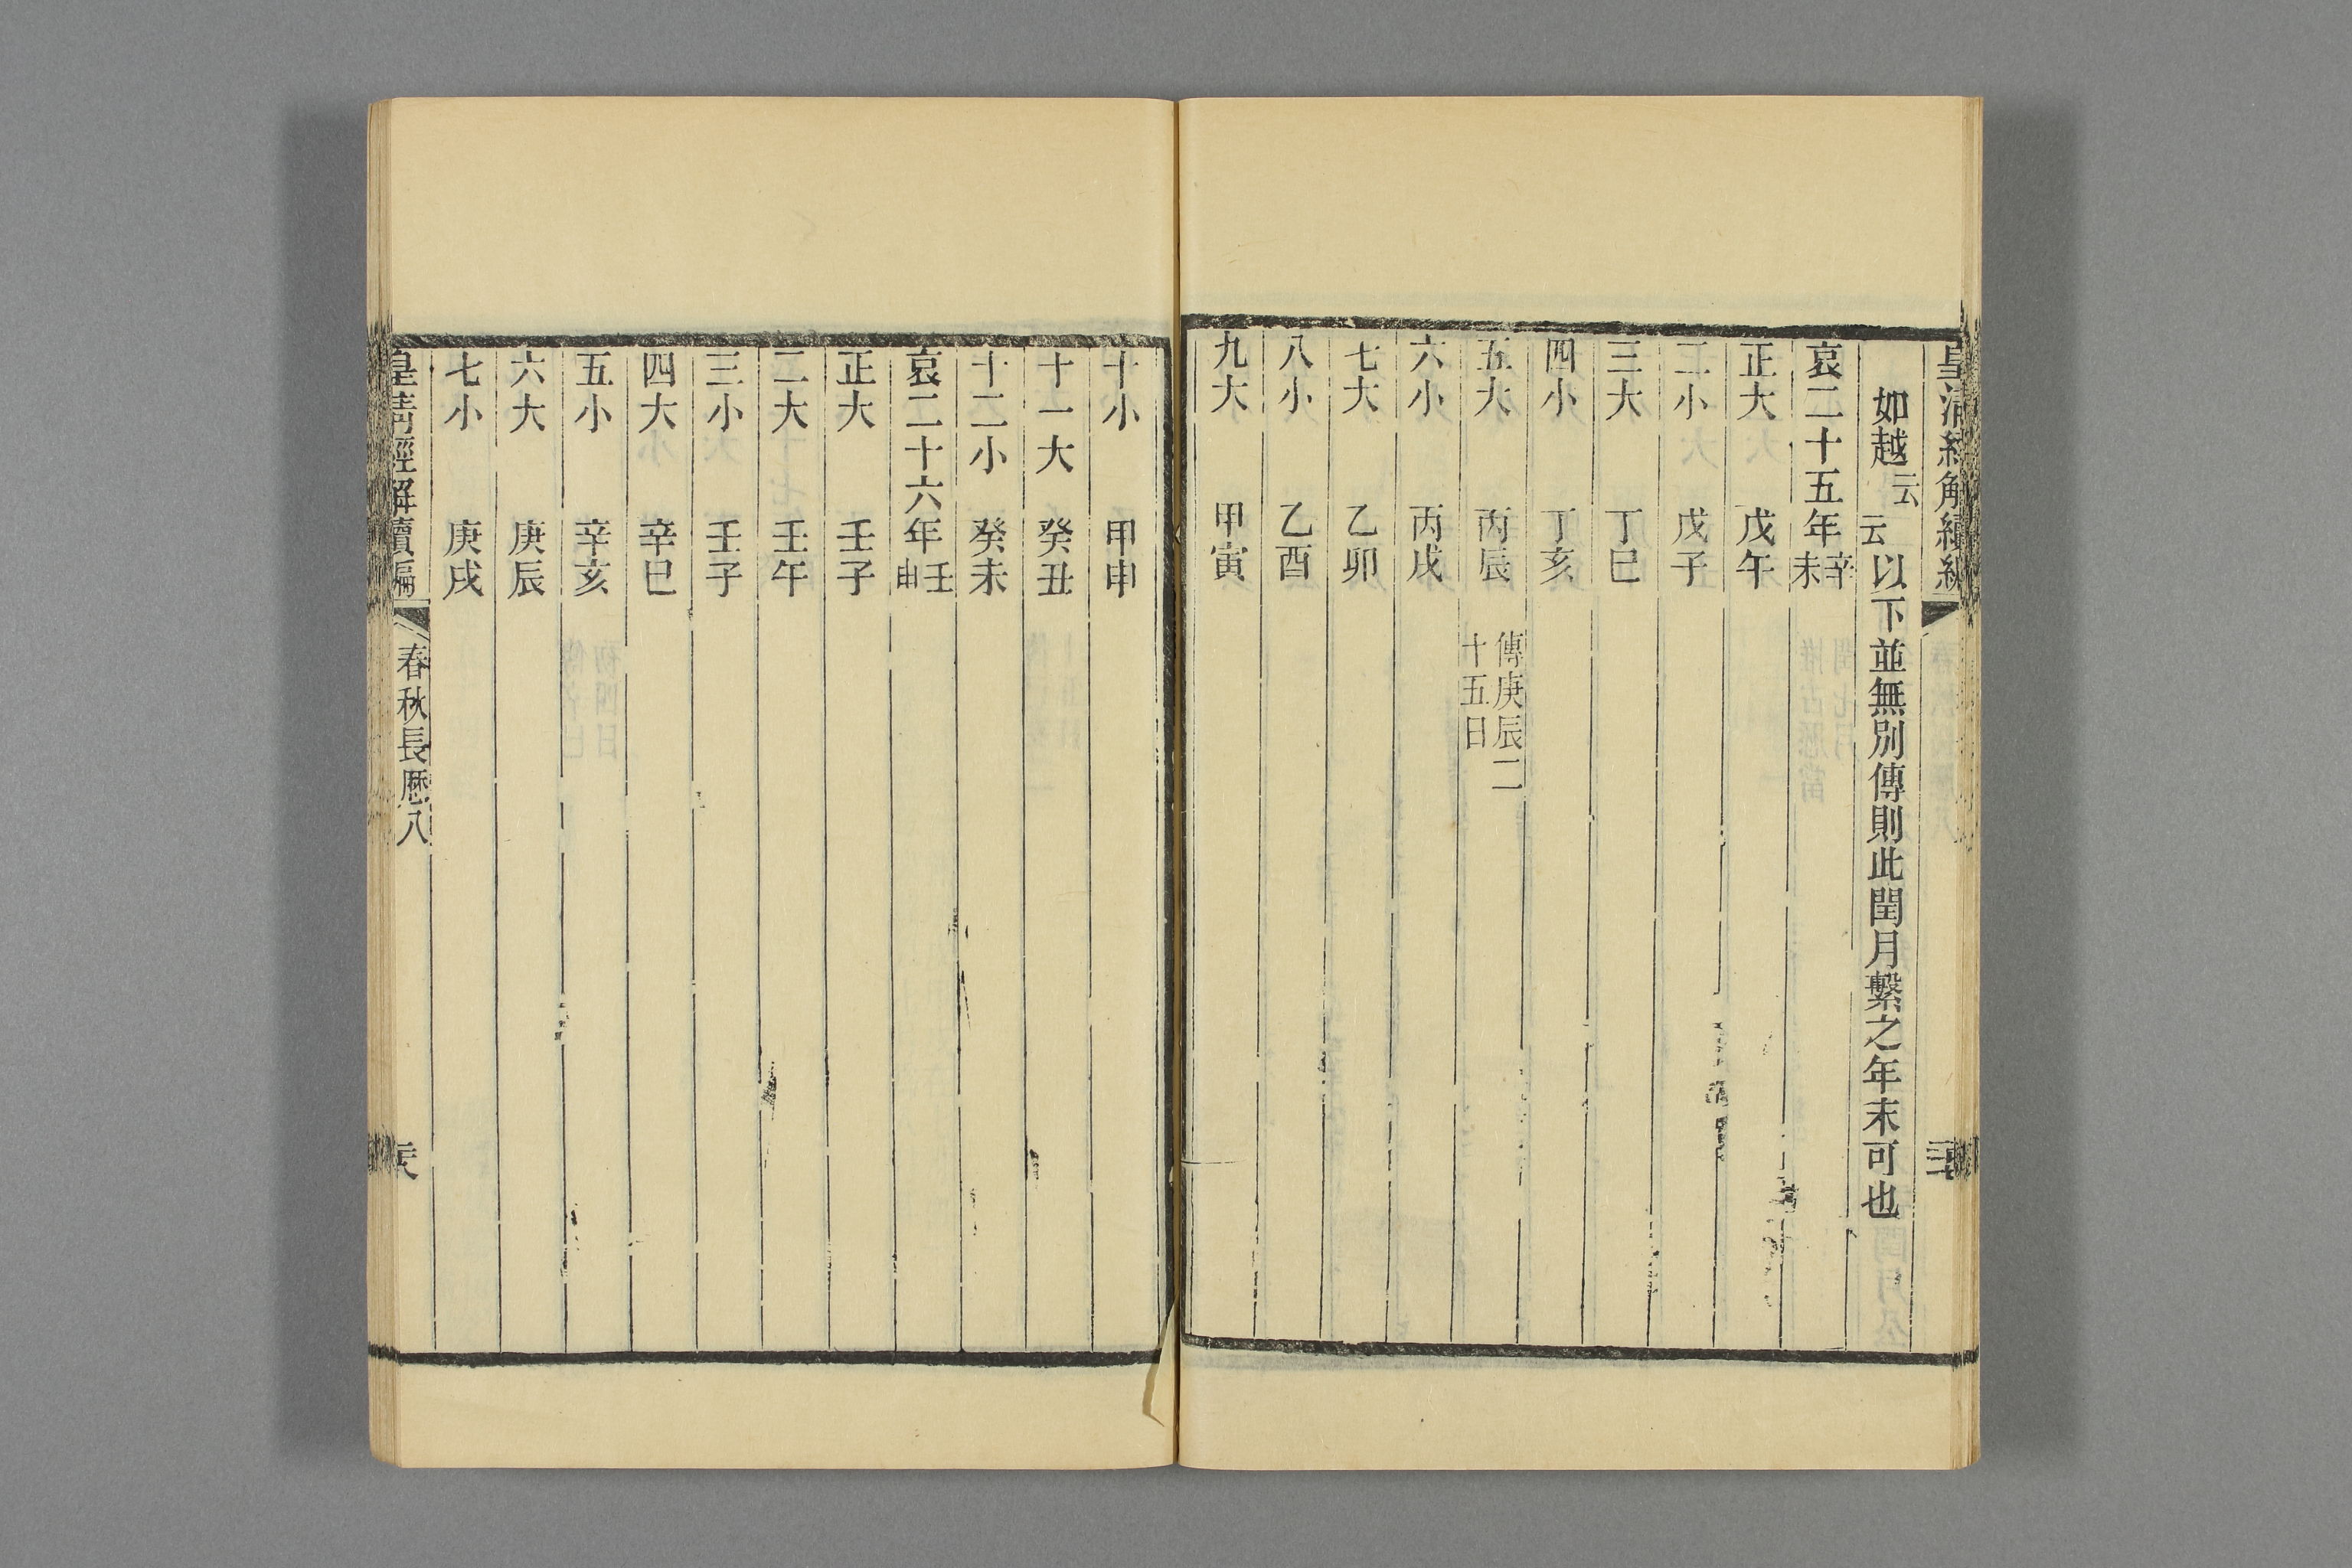 如越云云以下並無別傳則此閏月繫之年末可也
哀二十五年辛未
正大 戊午
二小 戊子
三大 丁巳
四小 丁亥
五大 丙辰 傳庚辰二十五日
六小 丙戌
七大 乙卯
八小 乙酉
九大 甲寅
十小 甲申
十一大 癸丑
十二小 癸未
哀二十六年壬申
正大 壬子
二大 壬午
三小 壬子
四大 辛巳
五小 辛亥
六大 庚辰
七小 庚戌
皇清經解續編 春秋長歷八